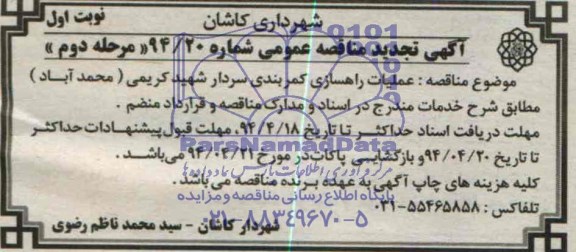 شهرداری کاشان
نوبت اول
آگهی تجدید مناقصه عمومی شماره ۹۴/۲۰ «مرحله دوم»
موضوع مناقصه : عملیات راهسازی کمربندی سردار شهید کریمی ( محمد آباد )
مطابق شرح خدمات مندرج در اسناد و مدارک مناقصه و قرارداد منضم .
مهلت دریافت اسناد حداکثر تا تاریخ ۹۴/۴/۱۸، مهلت قبول پیشنهادات حداکثر
تا تاریخ ۹۴/۰۴/۲۰ و بازگشایی پاکات در مورخ ۹۴/۰۴/۲۱ می‌باشد .
کلیه هزینه های چاپ آگهی به عهده برنده مناقصه می باشد .
تلفاکس : ۵۵۴۶۵۸۵۸-۰۳۱
شهردار کاشان - سید محمد ناظم رضوی
ParsNamadData
پایگاه اطلاع رسانی مناقصه و مزایده
۰۲۱-۸۸۳۴۹۶۷۰-۵